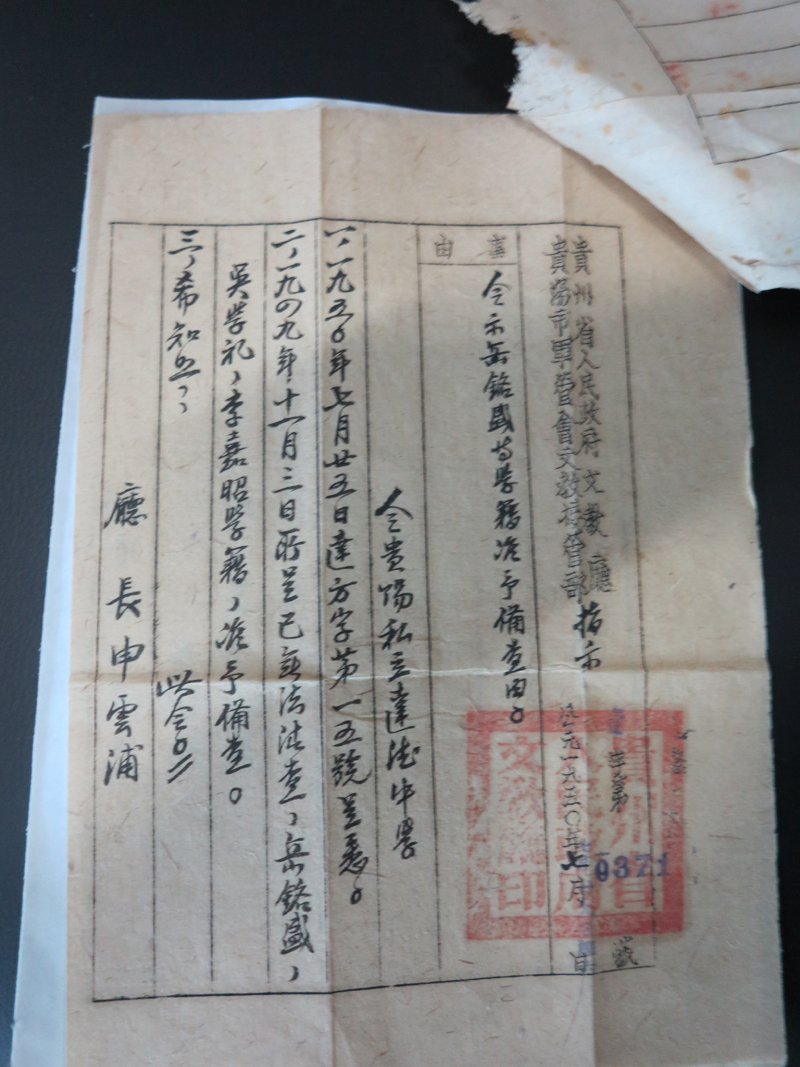 貴州省人民政府文教廳
貴陽市軍管會文教接管部
指示
字第0371號
公元一九五〇年七月 日
事由
令示岳銘盛等學籍准予備查由。
令貴陽私立達德中學
一、一九五〇年七月廿五日達方字第一五號呈悉。
二、一九四九年十一月三日所呈已無法清查、岳銘盛、
吳學礼、李嘉昭學籍、准予備查。
三、希知照、
此令。
廳長申雲浦
貴州省人民政府文教廳印